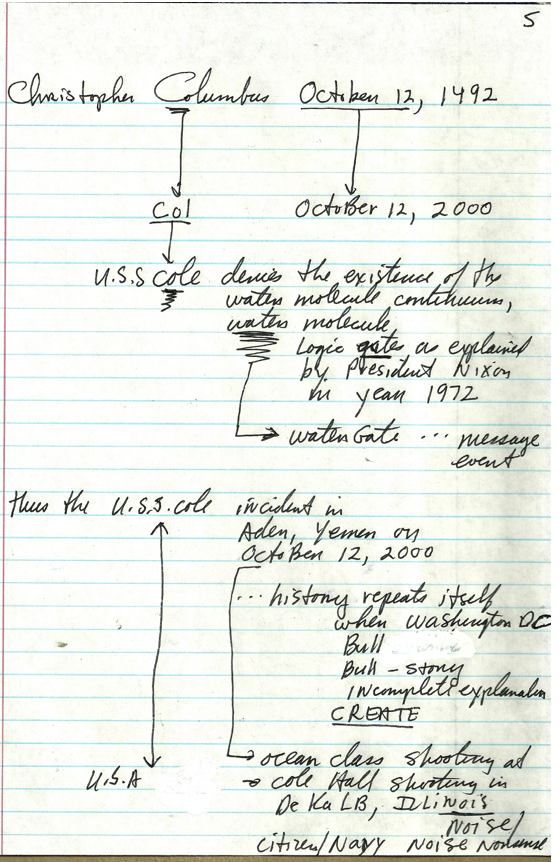 5
Christopher Columbus October 12, 1492
Col October 12, 2000
U.S.S cole denies the existence of the
water molecule continuum,
water molecule
Logic gates as explained
by President Nixon
in year 1972
waterGate ... message
event
thus the U.S.S. cole incident in
Aden, Yemen on
October 12, 2000
... history repeats itself
when Washington DC
Bull
Bull - story
incomplete explanation
CREATE
ocean class shooting at
U.S.A cole Hall shooting in
De KaLB, ILLINOIS
NOISE/
citizen/Navy Noise Nonsense